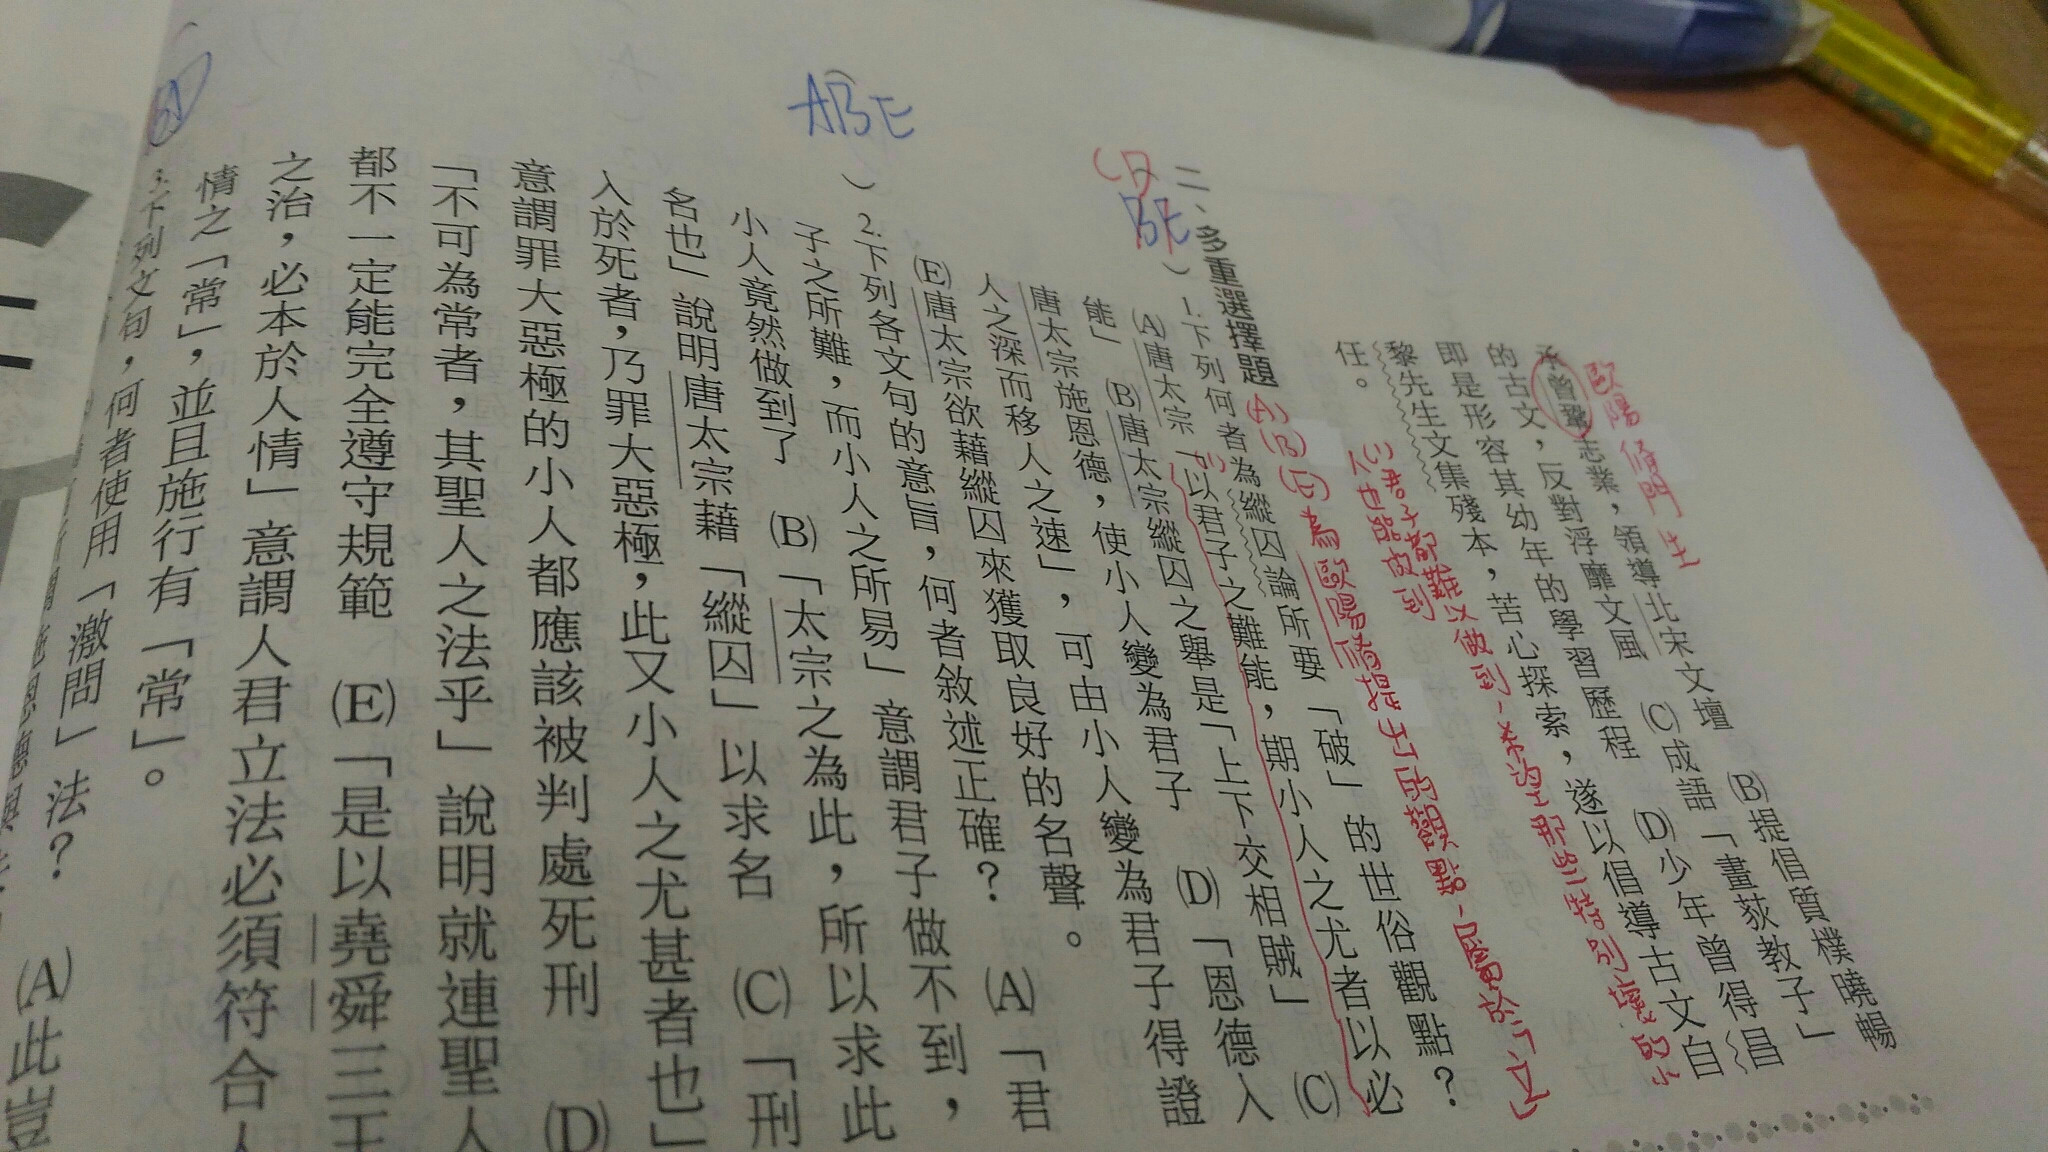 歐陽脩門生
承曾鞏志業，領導北宋文壇　(B)提倡質樸曉暢
的古文，反對浮靡文風　(C)成語「畫荻教子」
即是形容其幼年的學習歷程　(D)少年曾得昌
黎先生文集殘本，苦心探索，遂以倡導古文自
任。
(A)(B)(E)為歐陽脩提出的論點，屬於「立」
二、多重選擇題
(D
BE
）1.下列何者為縱囚論所要「破」的世俗觀點？
(A)唐太宗「以君子之難能，期小人之尤者以必
能」　(B)唐太宗縱囚之舉是「上下交相賊」　(C)
唐太宗施恩德，使小人變為君子　(D)「恩德入
人之深而移人之速」，可由小人變為君子得證
(E)唐太宗欲藉縱囚來獲取良好的名聲。
ABE
）2.下列各文句的意旨，何者敘述正確？　(A)「君
子之所難，而小人之所易」意謂君子做不到，
小人竟然做到了　(B)「太宗之為此，所以求此
名也」說明唐太宗藉「縱囚」以求名　(C)「刑
入於死者，乃罪大惡極，此又小人之尤甚者也」
意謂罪大惡極的小人都應該被判處死刑　(D)
「不可為常者，其聖人之法乎」說明就連聖人
都不一定能完全遵守規範　(E)「是以堯舜三王
之治，必本於人情」意謂人君立法必須符合人
情之「常」，並且施行有「常」。
3.下列文句，何者使用「激問」法？　(A)此豈